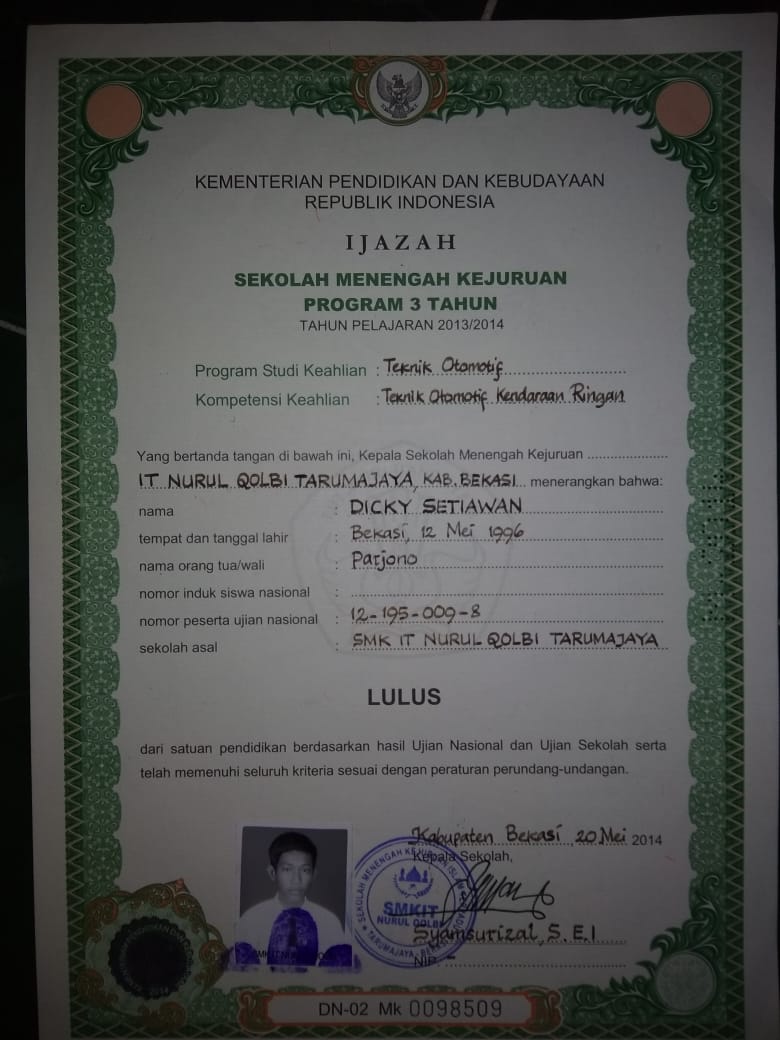 KEMENTERIAN PENDIDIKAN DAN KEBUDAYAAN
REPUBLIK INDONESIA
IJAZAH
SEKOLAH MENENGAH KEJURUAN
PROGRAM 3 TAHUN
TAHUN PELAJARAN 2013/2014
Program Studi Keahlian : Teknik Otomotif
Kompetensi Keahlian : Teknik Otomotif Kendaraan Ringan
Yang bertanda tangan di bawah ini, Kepala Sekolah Menengah Kejuruan
IT NURUL QOLBI TARUMAJAYA, KAB. BEKASI menerangkan bahwa:
nama : DICKY SETIAWAN
tempat dan tanggal lahir : Bekasi, 12 Mei 1996
nama orang tua/wali : Parjono
nomor induk siswa nasional :
nomor peserta ujian nasional : 12-195-009-8
sekolah asal : SMK IT NURUL QOLBI TARUMAJAYA
LULUS
dari satuan pendidikan berdasarkan hasil Ujian Nasional dan Ujian Sekolah serta
telah memenuhi seluruh kriteria sesuai dengan peraturan perundang-undangan.
Kabupaten Bekasi, 20 Mei 2014
Kepala Sekolah,
SEKOLAH MENENGAH KEJURUAN
SMKIT
NURUL QOLBI
TARUMAJAYA
Syamsurizal, S.E.I
NIP. -
DN-02 Mk 0098509